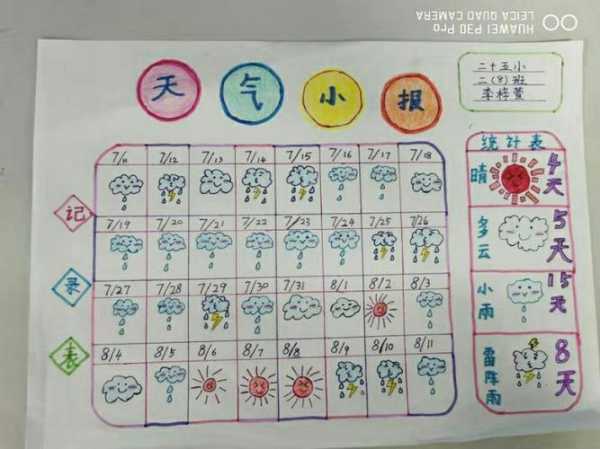 HUAWEI P30 Pro
LEICA QUAD CAMERA
天气小报
二十五小
二(8)班
李梓萱
记录表
7/11 7/12 7/13 7/14 7/15 7/16 7/17 7/18
7/19 7/20 7/21 7/22 7/23 7/24 7/25 7/26
7/27 7/28 7/29 7/30 7/31 8/1 8/2 8/3
8/4 8/5 8/6 8/7 8/8 8/9 8/10 8/11
统计表
晴 4天
多云 5天
小雨 15天
雷阵雨 8天